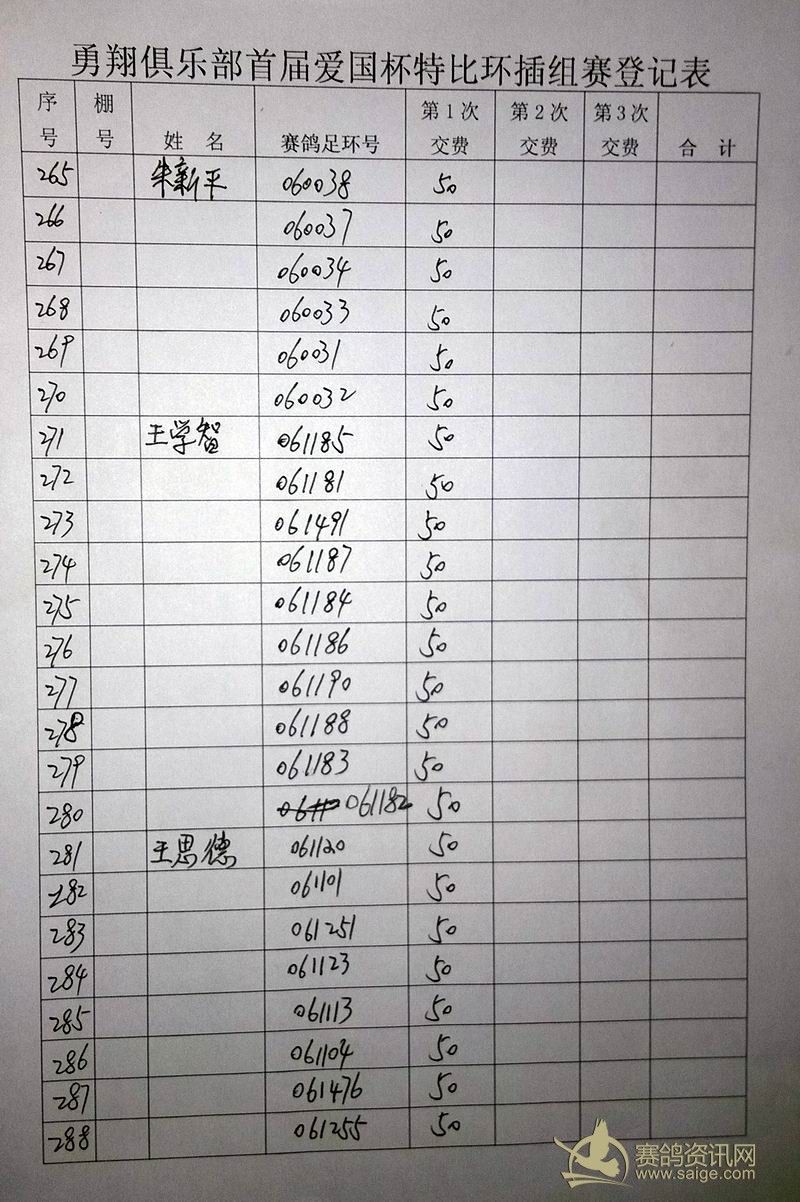 勇翔俱乐部首届爱国杯特比环插组赛登记表
序号 棚号 姓 名 赛鸽足环号 第1次交费 第2次交费 第3次交费 合 计
265 朱新平 060038 50
266 060037 50
267 060034 50
268 060033 50
269 060031 50
270 060032 50
271 王学智 061185 50
272 061181 50
273 061491 50
274 061187 50
275 061184 50
276 061186 50
277 061190 50
278 061188 50
279 061183 50
280 061182 50
281 王思德 061120 50
282 061101 50
283 061251 50
284 061123 50
285 061113 50
286 061104 50
287 061476 50
288 061255 50
赛鸽资讯网
www.saige.com